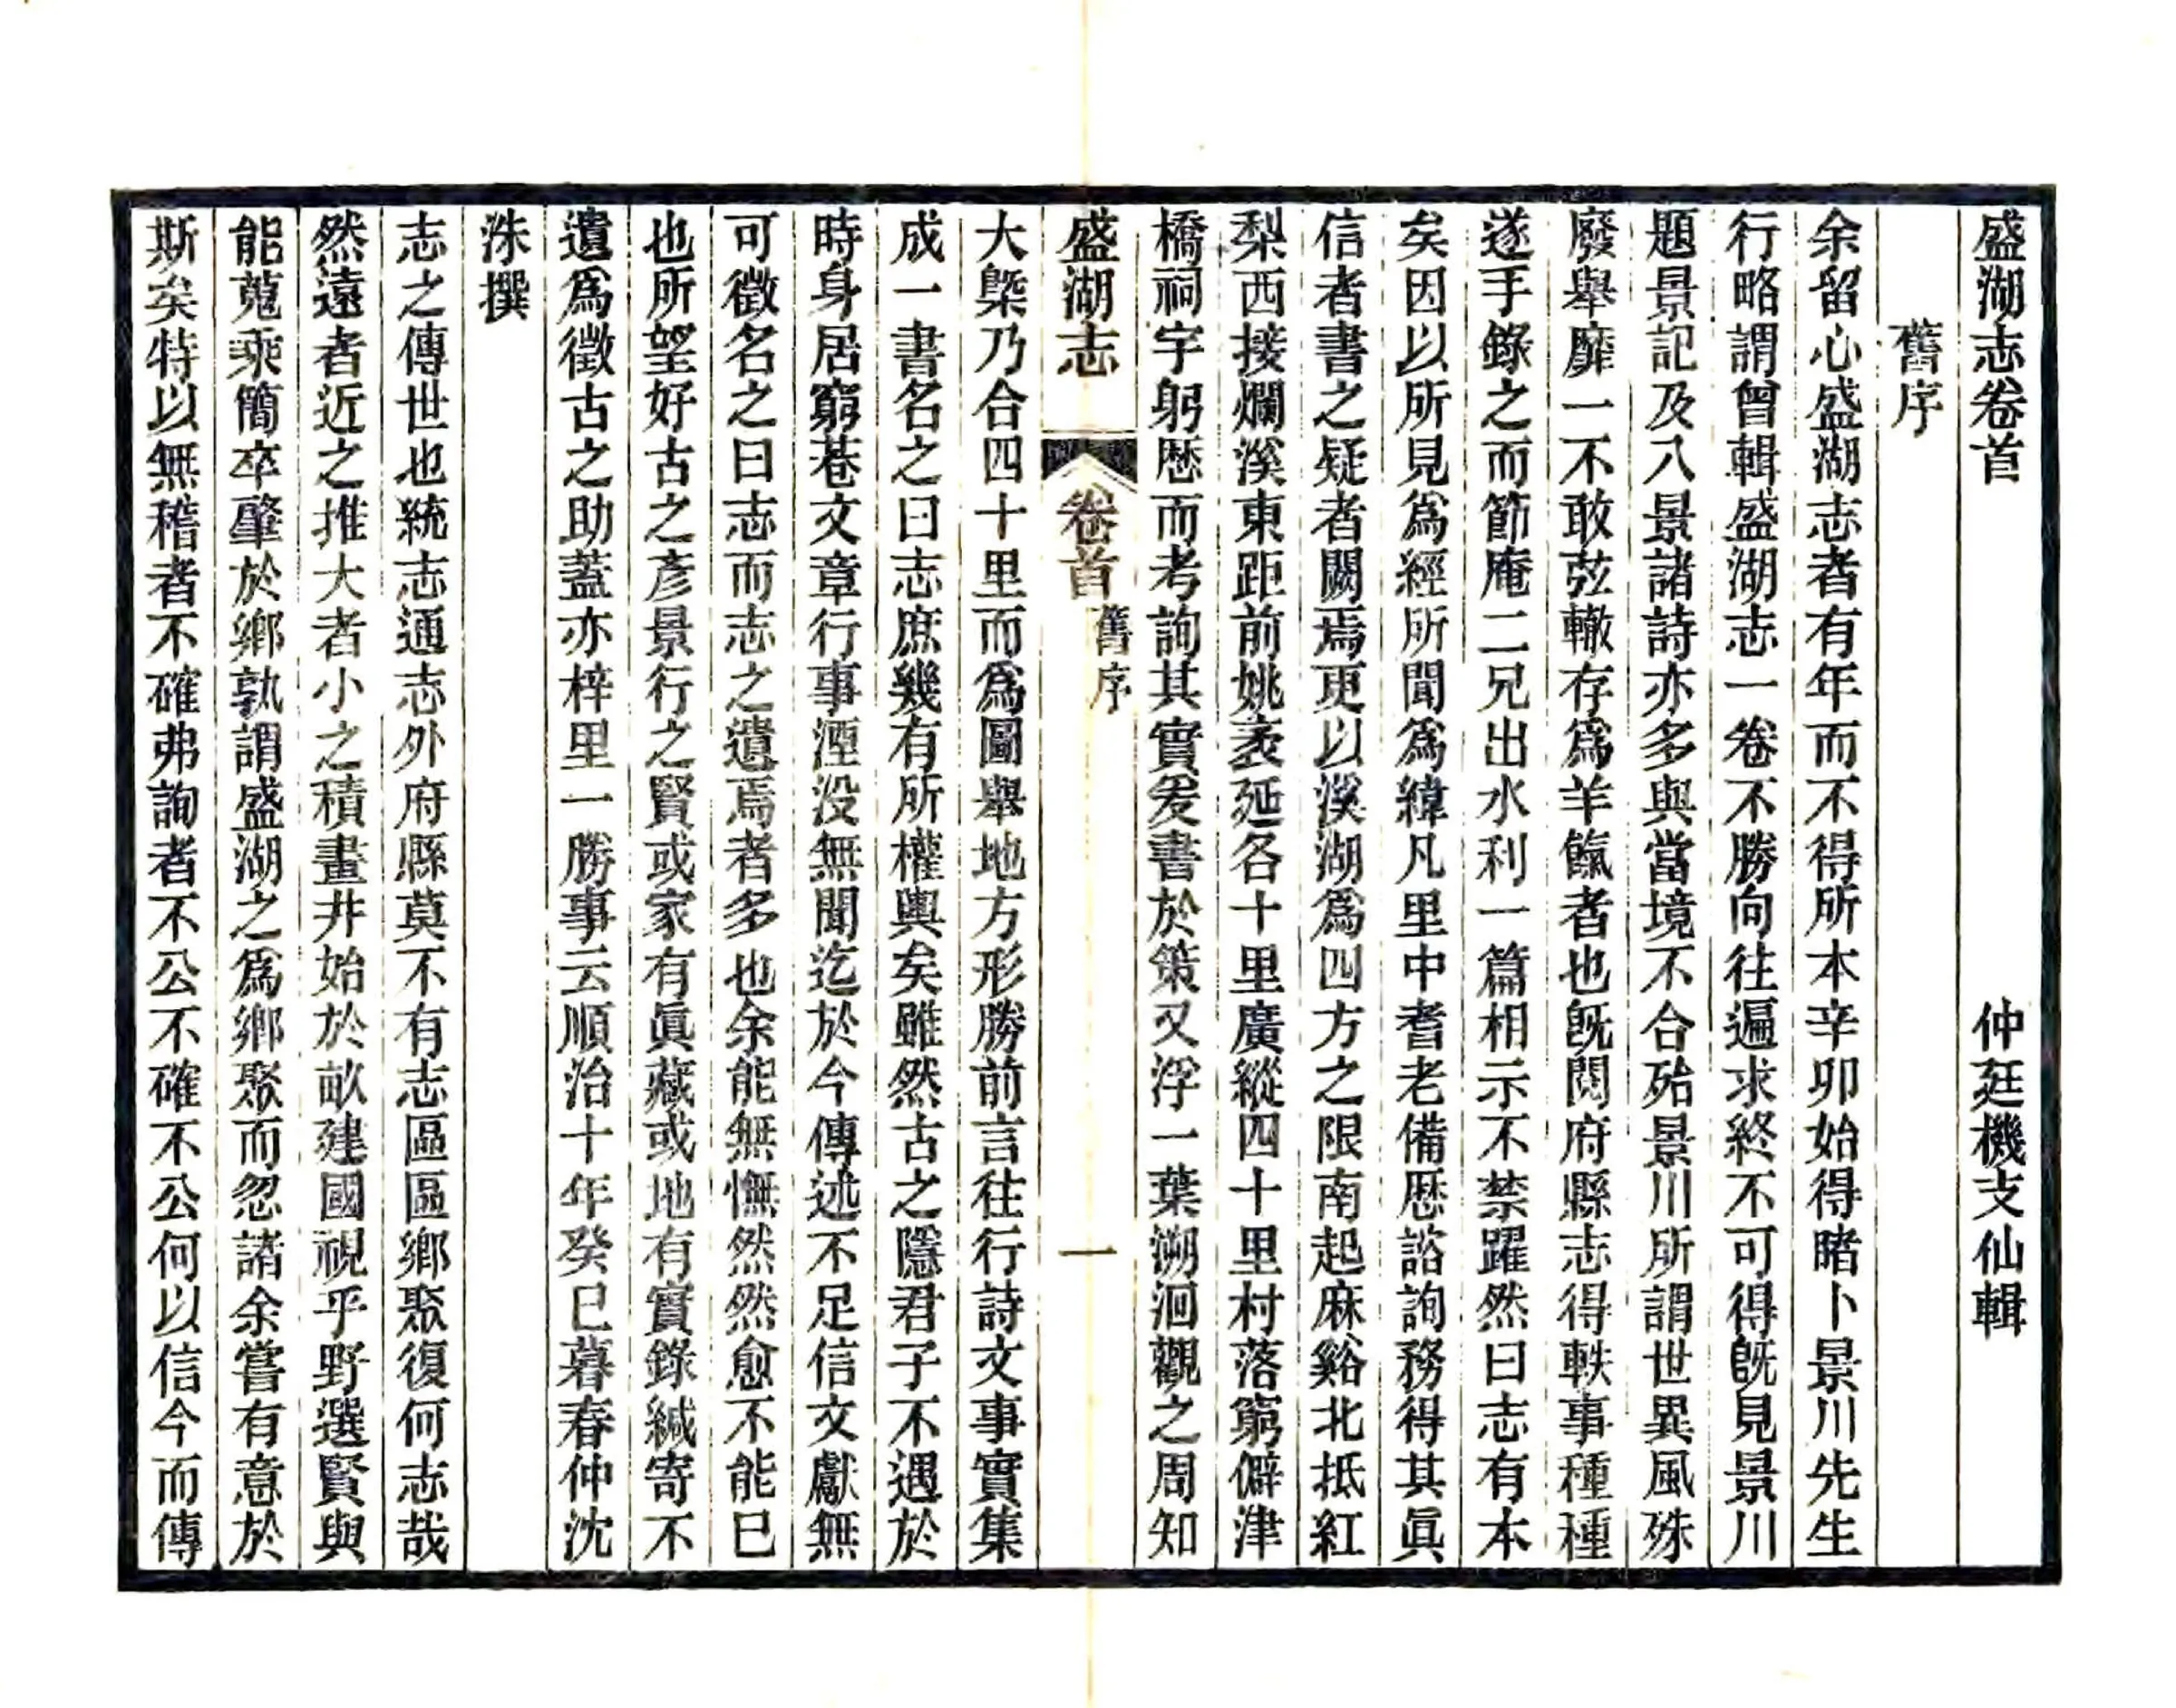 盛湖志卷首　仲廷機支仙輯
舊序
余留心盛湖志者有年而不得所本辛卯始得睹卜景川先生
行略謂曾輯盛湖志一卷不勝向往遍求終不可得旣見景川
題景記及八景諸詩亦多與當境不合殆景川所謂世異風殊
廢舉靡一不敢弦轍存爲羊餼者也旣閱府縣志得軼事種種
遂手錄之而節庵二兄出水利一篇相示不禁躍然曰志有本
矣因以所見爲經所聞爲緯凡里中耆老備歷諮詢務得其眞
信者書之疑者闕焉更以溪湖爲四方之限南起麻谿北抵紅
梨西接爛溪東距前姚袤延各十里廣縱四十里村落窮僻津
橋祠宇躬歷而考詢其實爰書於策又浮一葉溯洄觀之周知
盛湖志　卷首　舊序　一
大槩乃合四十里而爲圖舉地方形勝前言往行詩文事實集
成一書名之曰志庶幾有所權輿矣雖然古之隱君子不遇於
時身居窮巷文章行事湮没無聞迄於今傳述不足信文獻無
可徵名之曰志而志之遺焉者多也余能無憮然然愈不能已
也所望好古之彥景行之賢或家有眞藏或地有實錄緘寄不
遺爲徵古之助蓋亦梓里一勝事云順治十年癸巳暮春仲沈
洙撰
志之傳世也統志通志外府縣莫不有志區區鄉聚復何志哉
然遠者近之推大者小之積畫井始於畝建國視乎野選賢與
能蒐乘簡卒肇於鄉孰謂盛湖之爲鄉聚而忽諸余嘗有意於
斯矣特以無稽者不確弗詢者不公不確不公何以信今而傳